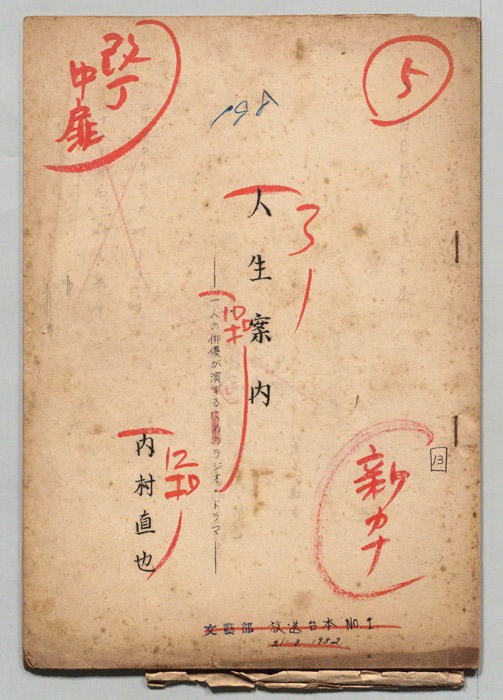 改丁
中扉
5
198
人生案内
——一人の俳優が演ずるためのラジオ・ドラマ——
10ポ
内村直也
12ポ
新カナ
13
文藝部 放送台本 NO.1
21.3.1952